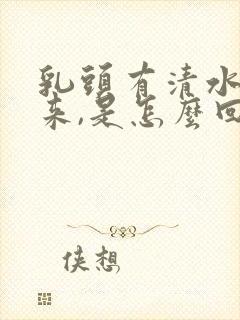 乳頭有清水
來,是怎麼回
俠想